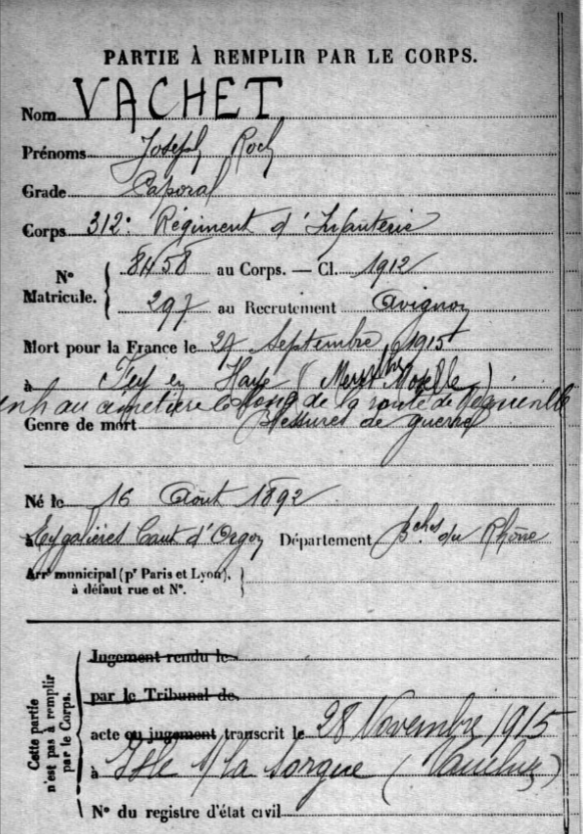 PARTIE À REMPLIR PAR LE CORPS.
Nom VACHET
Prénoms Joseph Roch
Grade Caporal
Corps 312e Régiment d'Infanterie
N° Matricule. 8458 au Corps. — Cl. 1912
297 au Recrutement Avignon
Mort pour la France le 27 Septembre 1915
à Fey en Haye (Meurthe Moselle)
inh au cimetière le long de la route de
Genre de mort Blessures de guerre
Né le 16 Août 1892
à Eygalières Cant d'Orgon Département Bches du Rhône
Arrt municipal (pr Paris et Lyon), à défaut rue et N°.
Cette partie n'est pas à remplir par le Corps.
Jugement rendu le
par le Tribunal de
acte ou jugement transcrit le 28 Novembre 1915
à Isle s/ la Sorgue (Vaucluse)
N° du registre d'état civil